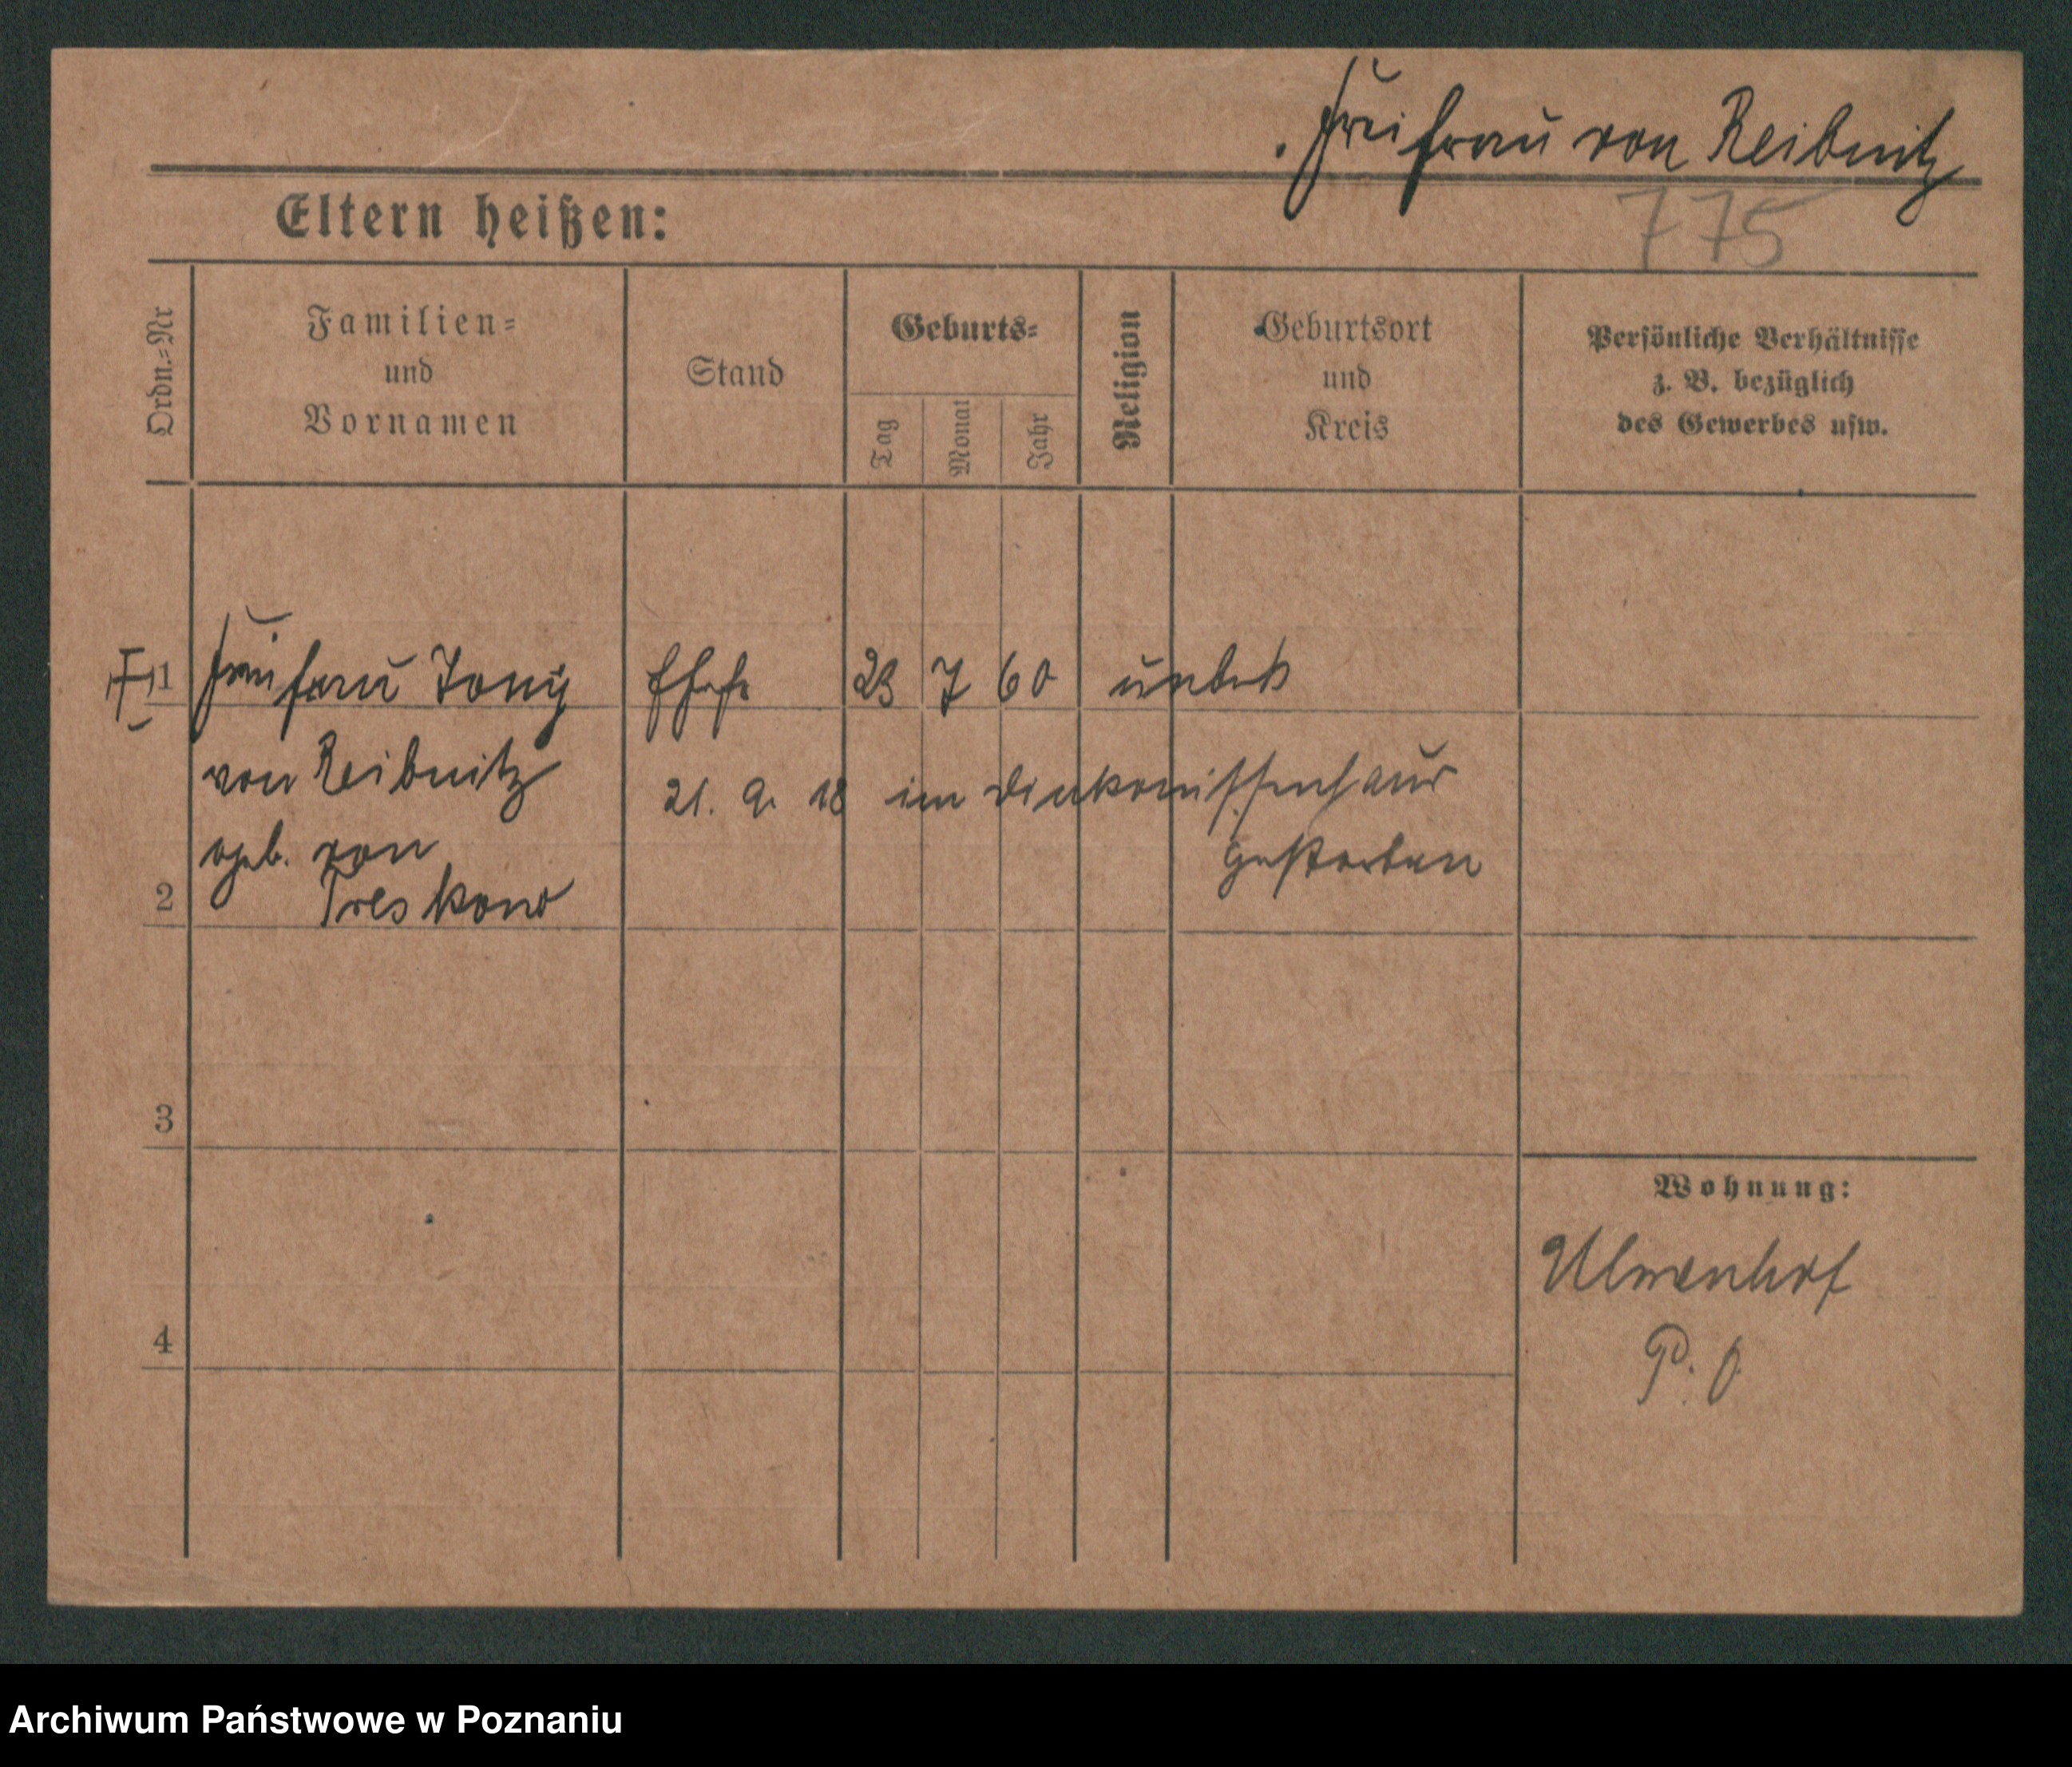 Freifrau von Reibnitz
775
Eltern heißen:
Ordn.=Nr
Familien=
und
Vornamen
Stand
Geburts=
Tag
Monat
Jahr
Religion
Geburtsort
und
Kreis
Persönliche Verhältnisse
z. B. bezüglich
des Gewerbes usw.
1 Freifrau Tony Ehefr 23 7 60 unbek
von Reibnitz
21. 9. 18 im Diakonissenhaus
geb. von gestorben
2 Treskow
3
Wohnung:
Ulmenhof
4
P. O.
Archiwum Państwowe w Poznaniu